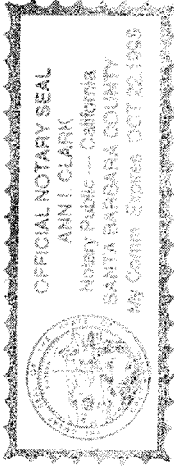 OFFICIAL NOTARY SEAL
ANN I. CLARK
Notary Public — California
SANTA BARBARA COUNTY
My Comm. Expires OCT 10,